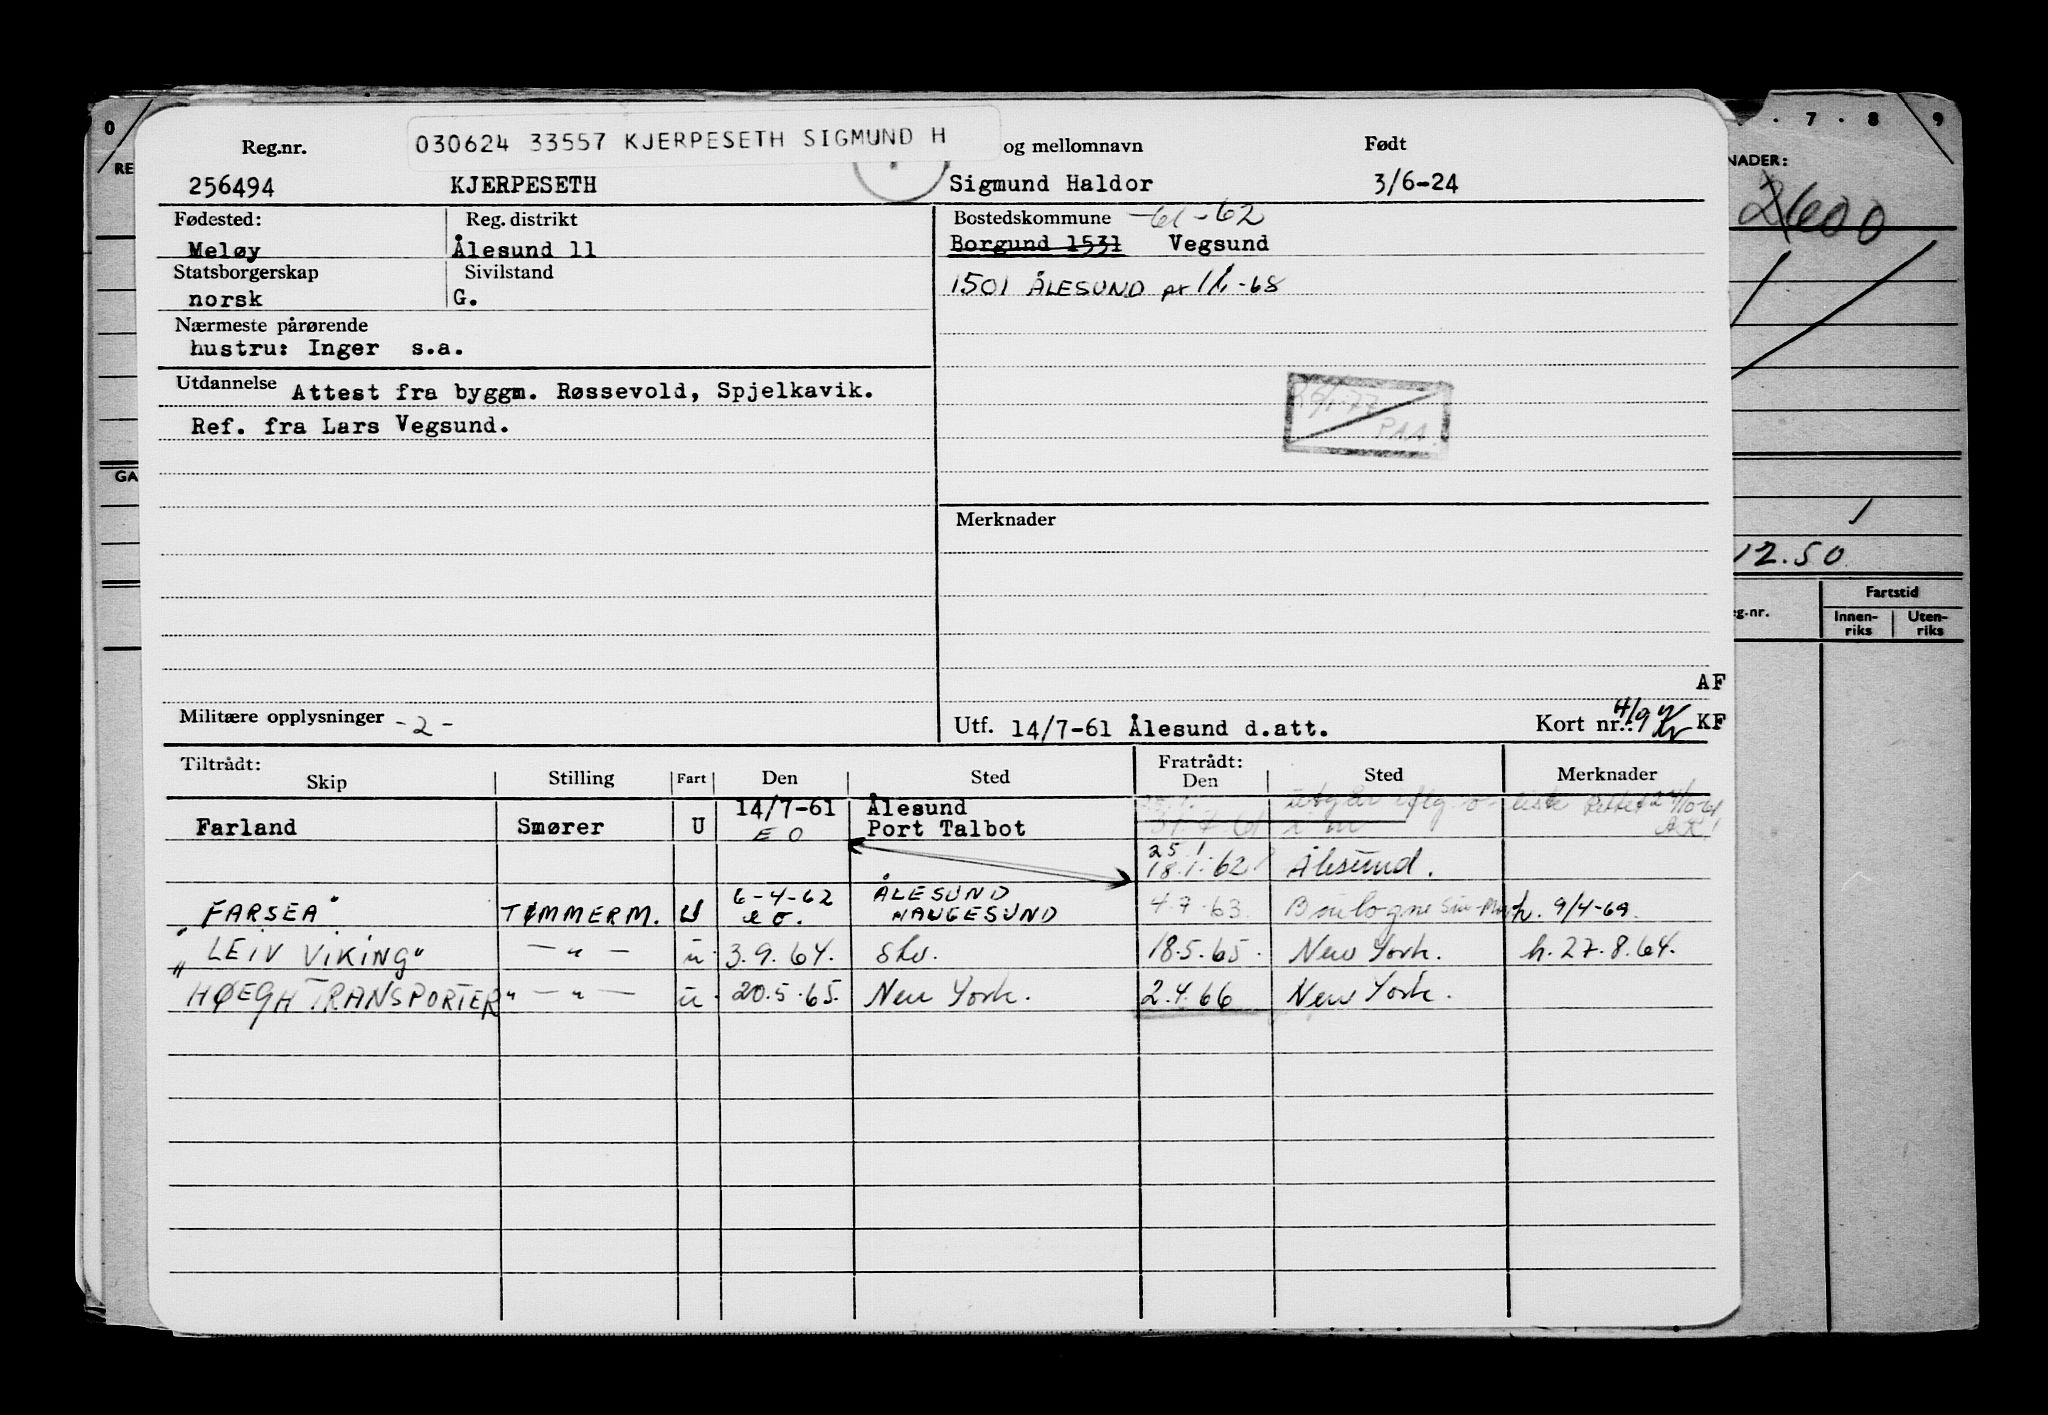 0 7 · 8 9
030624 33557 KJERPESETH SIGMUND H
Reg.nr. og mellomnavn Født
256494 KJERPESETH Sigmund Haldor 3/6-24
Fødested: Reg. distrikt Bostedskommune -61-62
Meløy Ålesund 11 Borgund 1531 Vegsund
Statsborgerskap Sivilstand
norsk G. 1501 ÅLESUND pr 1/1-68
Nærmeste pårørende
hustru: Inger s.a.
Utdannelse Attest fra byggm. Røssevold, Spjelkavik.
Ref. fra Lars Vegsund.
PAA.
Merknader
AF
Militære opplysninger -2- Utf. 14/7-61 Ålesund d.att. Kort nr.: KF
Tiltrådt: Fratrådt:
Skip Stilling Fart Den Sted Den Sted Merknader
14/7-61 Ålesund
Farland Smører U E O Port Talbot
25.1
18.1.62 Ålesund.
6-4-62 ÅLESUND
"FARSEA" TØMMERM. U e o. HAUGESUND 4.7.63. Boulogne h. 9/4-69.
"LEIV VIKING" — " — u. 3.9.64. Skv. 18.5.65. New York. h. 27.8.64.
"HØEGH TRANSPORTER" — " — u. 20.5.65. New York. 2.4.66 New York.
RE
GA
NADER:
2600
1
12.50
eg.nr. Fartstid
Innen-riks Uten-riks